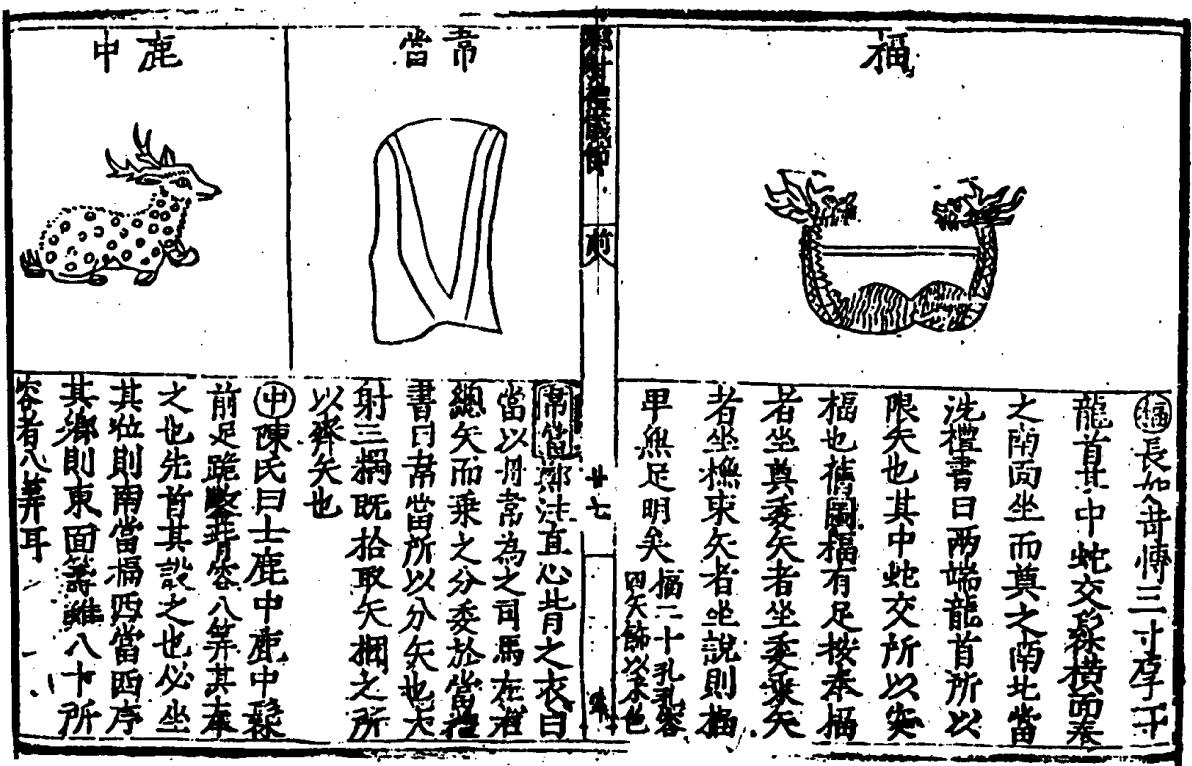 楅
楅長如笴慱三寸厚寸
龍首其中蛇交髹橫而奉
之南面坐而奠之南北當
洗禮書曰两端龍首所以
限矢也其中蛇交所以安
楅也舊圖楅有足按本楅
者坐奠委矢者坐委乗矢
者坐撫束矢者坐說則楅
卑無足明矣
楅二十孔孔容
四矢飾以朱色
鄉射禮儀節
前
廿七
韋當
韋當鄭注直心背之衣曰
當以丹韋為之司馬左右
總矢而乗之分委於當禮
書曰韋當所以分矢也大
射三捆既拾取矢捆之所
以齊矢也
鹿中
中陳氏曰士鹿中鹿中髹
前足跪鑿背容八筭其奉
之也先首其設之也必坐
其位則南當楅西當西序
其鄉則東面籌雖八十所
容者八筭耳